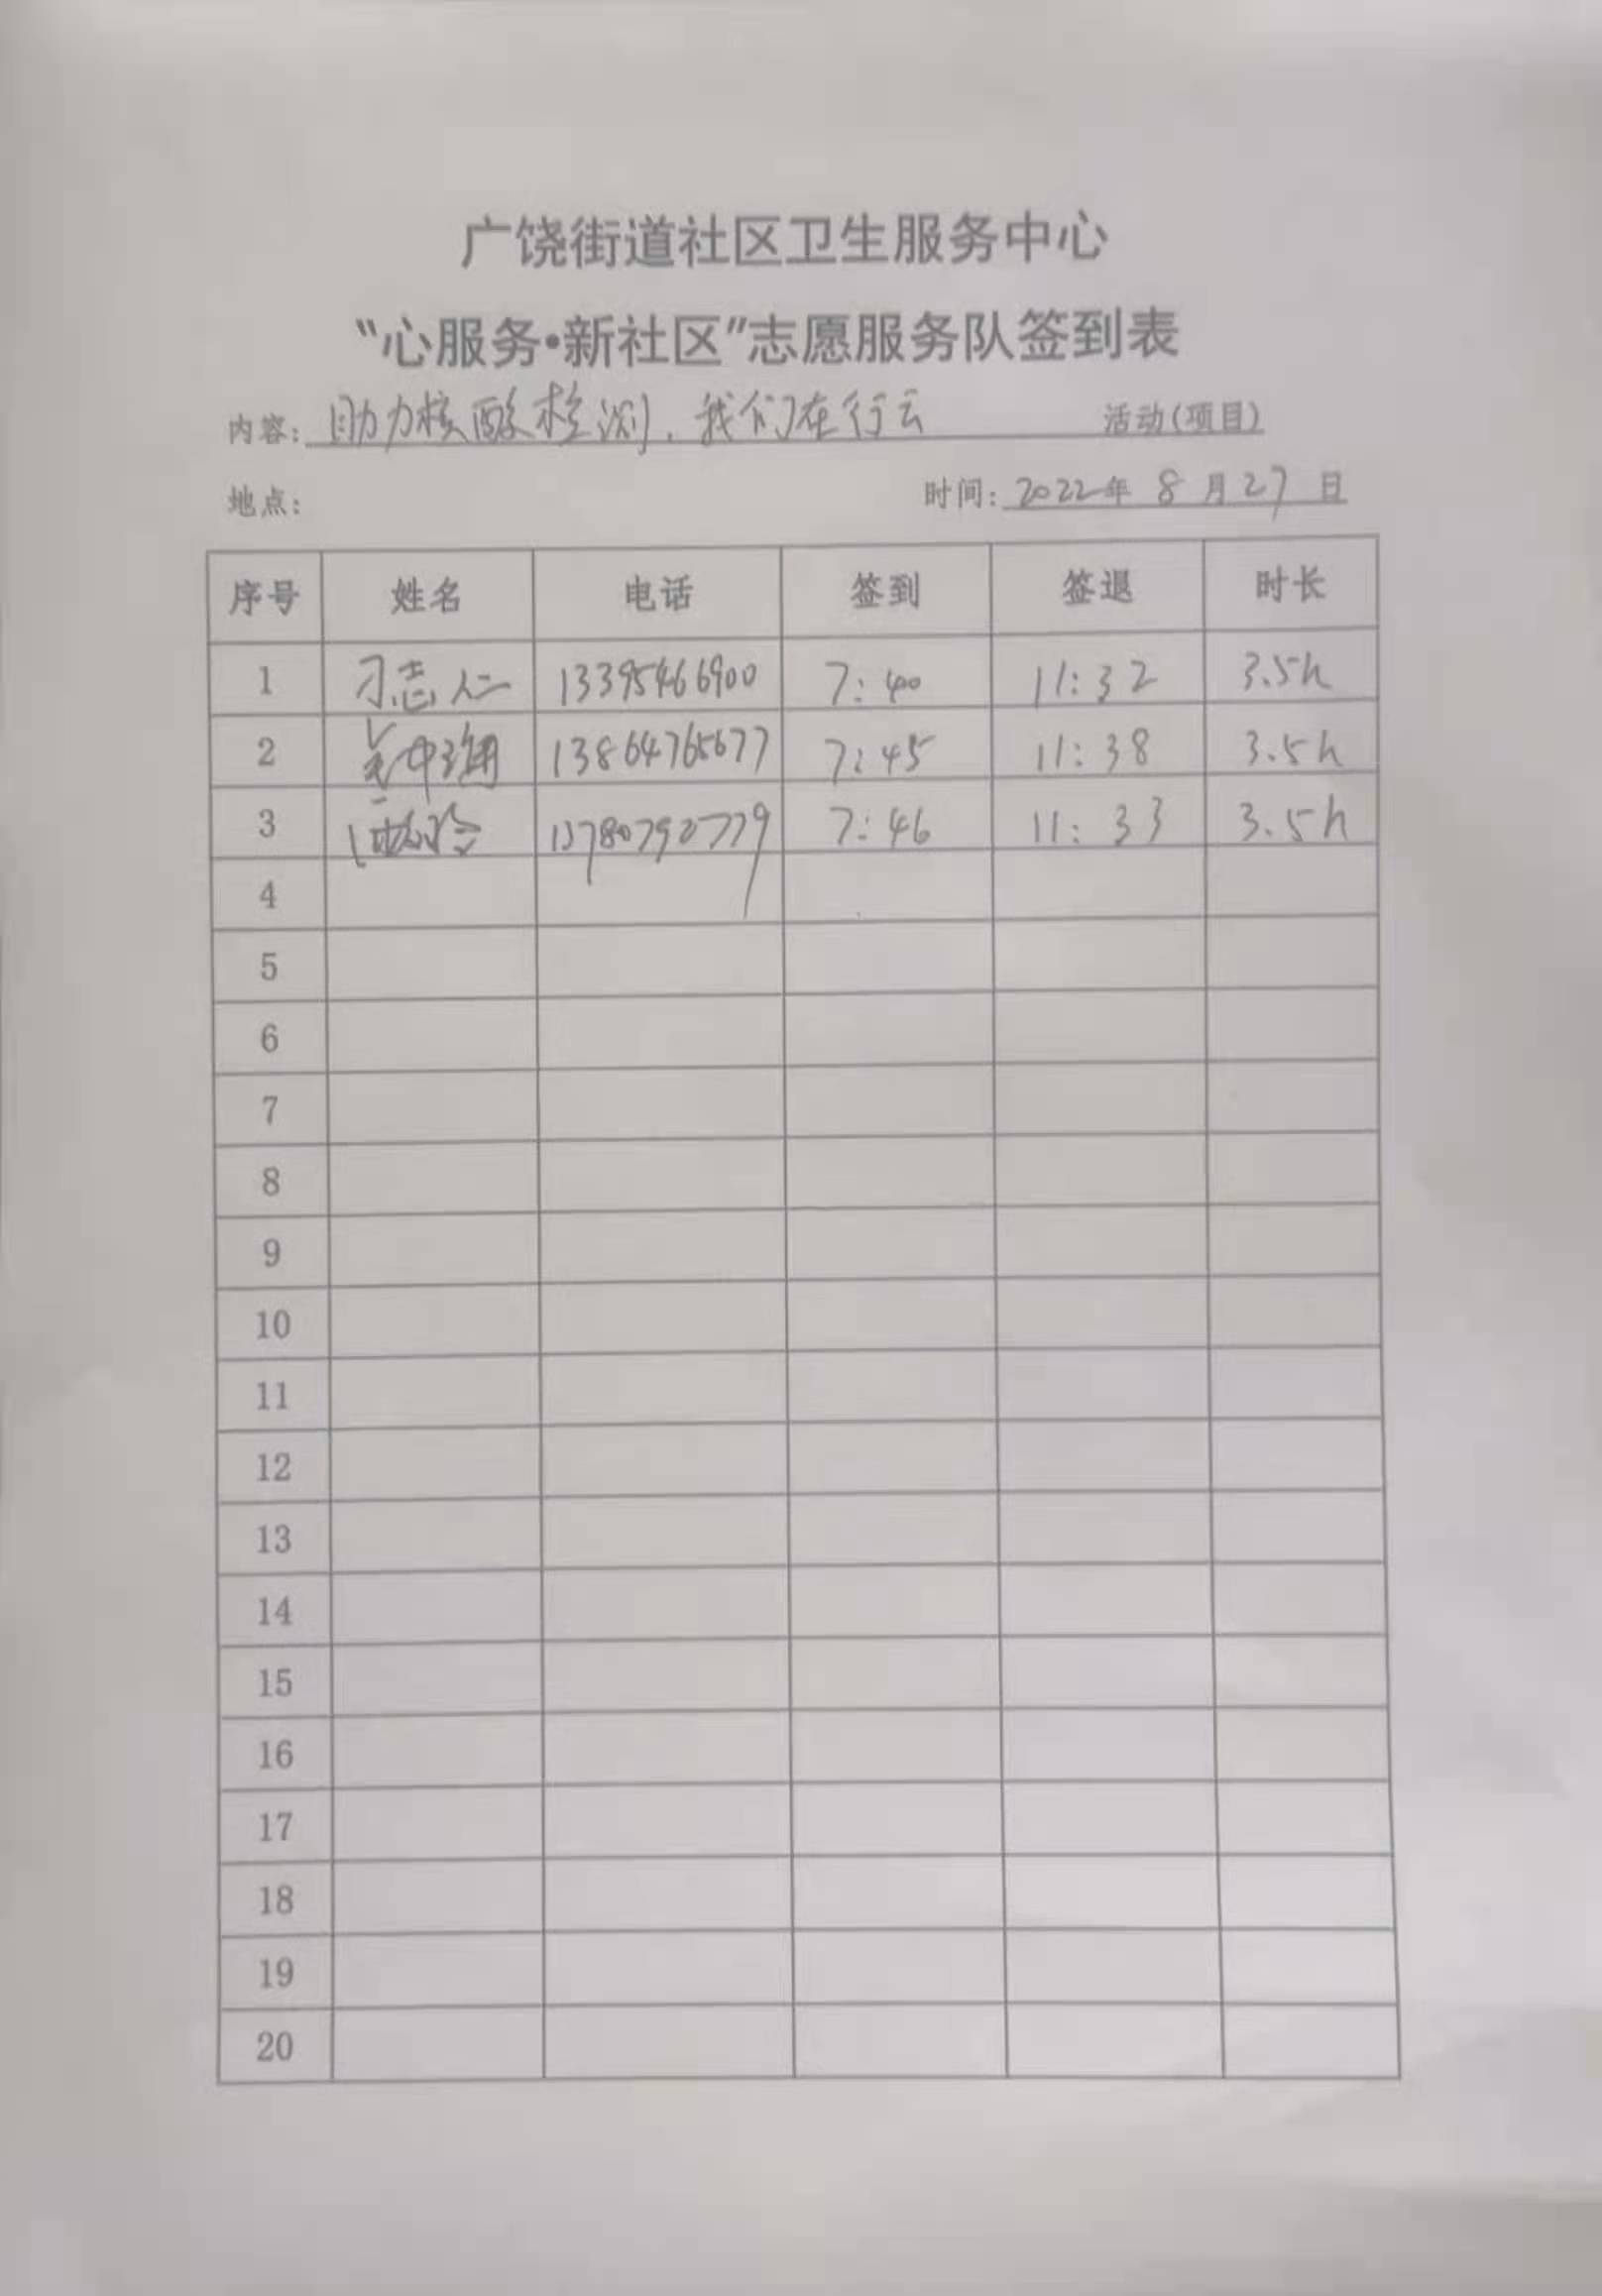 广饶街道社区卫生服务中心
“心服务·新社区”志愿服务队签到表
内容: 助力核酸检测,我们在行云 活动(项目)
地点: 时间: 2022年 8 月 27 日
序号 姓名 电话 签到 签退 时长
1 刁志仁 13395466900 7:40 11:32 3.5h
2 13864765677 7:45 11:38 3.5h
3 13780790779 7:46 11:33 3.5h
4
5
6
7
8
9
10
11
12
13
14
15
16
17
18
19
20